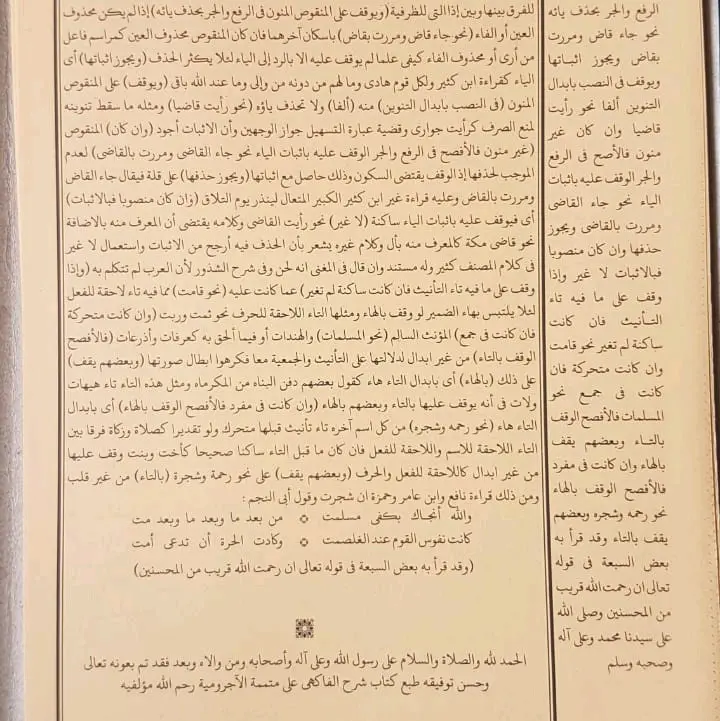 للفرق بينها وبين إذا التى للظرفية (ويوقف على المنقوص المنون فى الرفع والجر بحذف يائه) إذا لم يكن محذوف
العين أو الفاء (نحو جاء قاض ومررت بقاض) باسكان آخرهما فان كان المنقوص محذوف العين كمراسم فاعل
من أرى أو محذوف الفاء كيفى علما لم يوقف عليه الا بالرد إلى الياء لئلا يكثر الحذف (ويجوز اثباتها) أى
الياء كقراءة ابن كثير ولكل قوم هادى وما لهم من دونه من والى وما عند الله باقى (ويوقف) على المنقوص
المنون (فى النصب بابدال التنوين) منه (ألفا) ولا تحذف ياؤه (نحو رأيت قاضيا) ومثله ما سقط تنوينه
لمنع الصرف كرأيت جوارى وقضية عبارة التسهيل جواز الوجهين وأن الاثبات أجود (وان كان) المنقوص
(غير منون فالأفصح فى الرفع والجر الوقف عليه باثبات الياء نحو جاء القاضى ومررت بالقاضى) لعدم
الموجب لحذفها إذ الوقف يقتضى السكون وذلك حاصل مع اثباتها (ويجوز حذفها) على قلة فيقال جاء القاض
ومررت بالقاض وعليه قراءة غير ابن كثير الكبير المتعال لينذر يوم التلاق (وان كان منصوبا فبالاثبات)
أى فيوقف عليه باثبات الياء ساكنة (لا غير) نحو رأيت القاضى وكلامه يقتضى أن المعرف منه بالاضافة
نحو قاضى مكة كالمعرف منه بأل وكلام غيره يشعر بأن الحذف فيه أرجح من الاثبات واستعمال لا غير
فى كلام المصنف كثير وله مستند وان قال فى المغنى انه لحن وفى شرح الشذور لأن العرب لم تتكلم به (وإذا
وقف على ما فيه تاء التأنيث فان كانت ساكنة لم تغير) عما كانت عليه (نحو قامت) مما فيه تاء لاحقة للفعل
لئلا يلتبس بهاء الضمير لو وقف بالهاء ومثلها التاء اللاحقة للحرف نحو ثمت وربت (وان كانت متحركة
فان كانت فى جمع) المؤنث السالم (نحو المسلمات) والهندات أو فيما ألحق به كعرفات وأذرعات (فالأفصح
الوقف بالتاء) من غير ابدال لدلالتها على التأنيث والجمعية معا فكرهوا ابطال صورتها (وبعضهم يقف)
على ذلك (بالهاء) أى بابدال التاء هاء كقول بعضهم دفن البناه من المكرماه ومثل هذه التاء تاء هيهات
ولات فى أنه يوقف عليها بالتاء وبعضهم بالهاء (وان كانت فى مفرد فالأفصح الوقف بالهاء) أى بابدال
التاء هاء (نحو رحمه وشجره) من كل اسم آخره تاء تأنيث قبلها متحرك ولو تقديرا كصلاة وزكاة فرقا بين
التاء اللاحقة للاسم واللاحقة للفعل فان كان ما قبل التاء ساكنا صحيحا كأخت وبنت وقف عليها
من غير ابدال كاللاحقة للفعل والحرف (وبعضهم يقف) على نحو رحمة وشجرة (بالتاء) من غير قلب
ومن ذلك قراءة نافع وابن عامر وحمزة ان شجرت وقول أبى النجم :
والله أنجاك بكفى مسلمت من بعد ما وبعد ما وبعد مت
كانت نفوس القوم عند الغلصمت وكادت الحرة أن تدعى أمت
(وقد قرأ به بعض السبعة فى قوله تعالى ان رحمت الله قريب من المحسنين)
الحمد لله والصلاة والسلام على رسول الله وعلى آله وأصحابه ومن والاه وبعد فقد تم بعونه تعالى
وحسن توفيقه طبع كتاب شرح الفاكهى على متممة الآجرومية رحم الله مؤلفيه
الرفع والجر بحذف يائه
نحو جاء قاض ومررت
بقاض ويجوز اثباتها
ويوقف فى النصب بابدال
التنوين ألفا نحو رأيت
قاضيا وان كان غير
منون فالأصح فى الرفع
والجر الوقف عليه باثبات
الياء نحو جاء القاضى
ومررت بالقاضى ويجوز
حذفها وان كان منصوبا
فبالاثبات لا غير وإذا
وقف على ما فيه تاء
التأنيث فان كانت
ساكنة لم تغير نحو قامت
وان كانت متحركة فان
كانت فى جمع نحو
المسلمات فالأفصح الوقف
بالتاء وبعضهم يقف
بالهاء وان كانت فى مفرد
فالأفصح الوقف بالهاء
نحو رحمه وشجره وبعضهم
يقف بالتاء وقد قرأ به
بعض السبعة فى قوله
تعالى ان رحمت الله قريب
من المحسنين وصلى الله
على سيدنا محمد وعلى آله
وصحبه وسلم